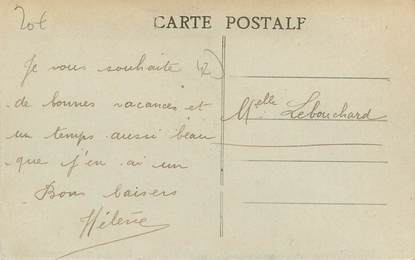 20€
CARTE POSTALE
Je vous souhaite
de bonnes vacances et
un temps aussi beau
que j'en ai un
Bons baisers
Hélène
Melle Lebouchard